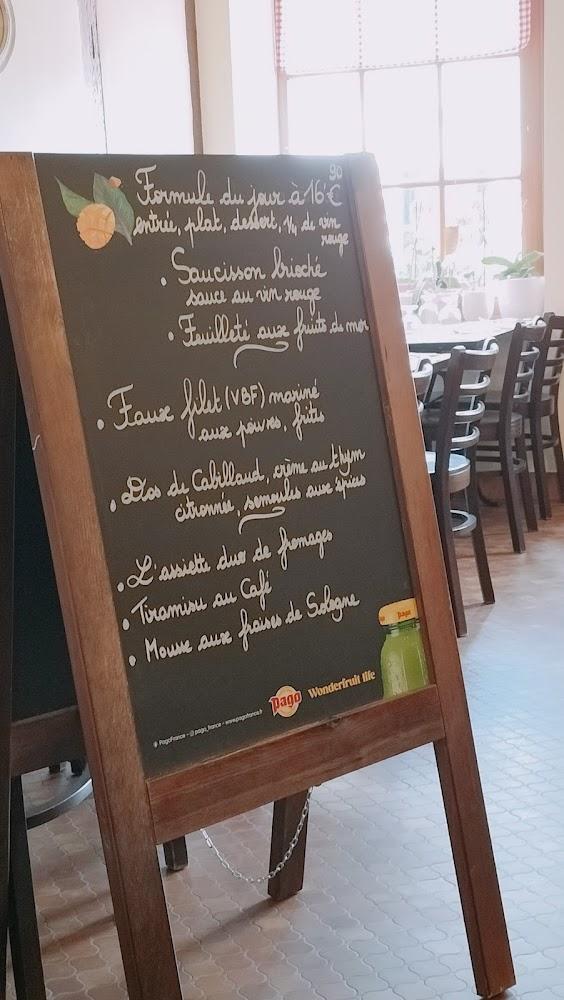 Formule du jour à 16€90
entrée, plat, dessert, ¼ de vin
rouge
• Saucisson brioché
sauce au vin rouge
• Feuilleté aux fruits de mer
• Faux filet (VBF) mariné
aux poivres, frites
• Dos de Cabillaud, crème au thym
citronnée, semoules aux épices
• L'assiette duo de fromages
• Tiramisu au Café
• Mousse aux fraises de Sologne
pago
pago Wonderfruit life
PagoFrance - @pago_france - www.pagofrance.fr